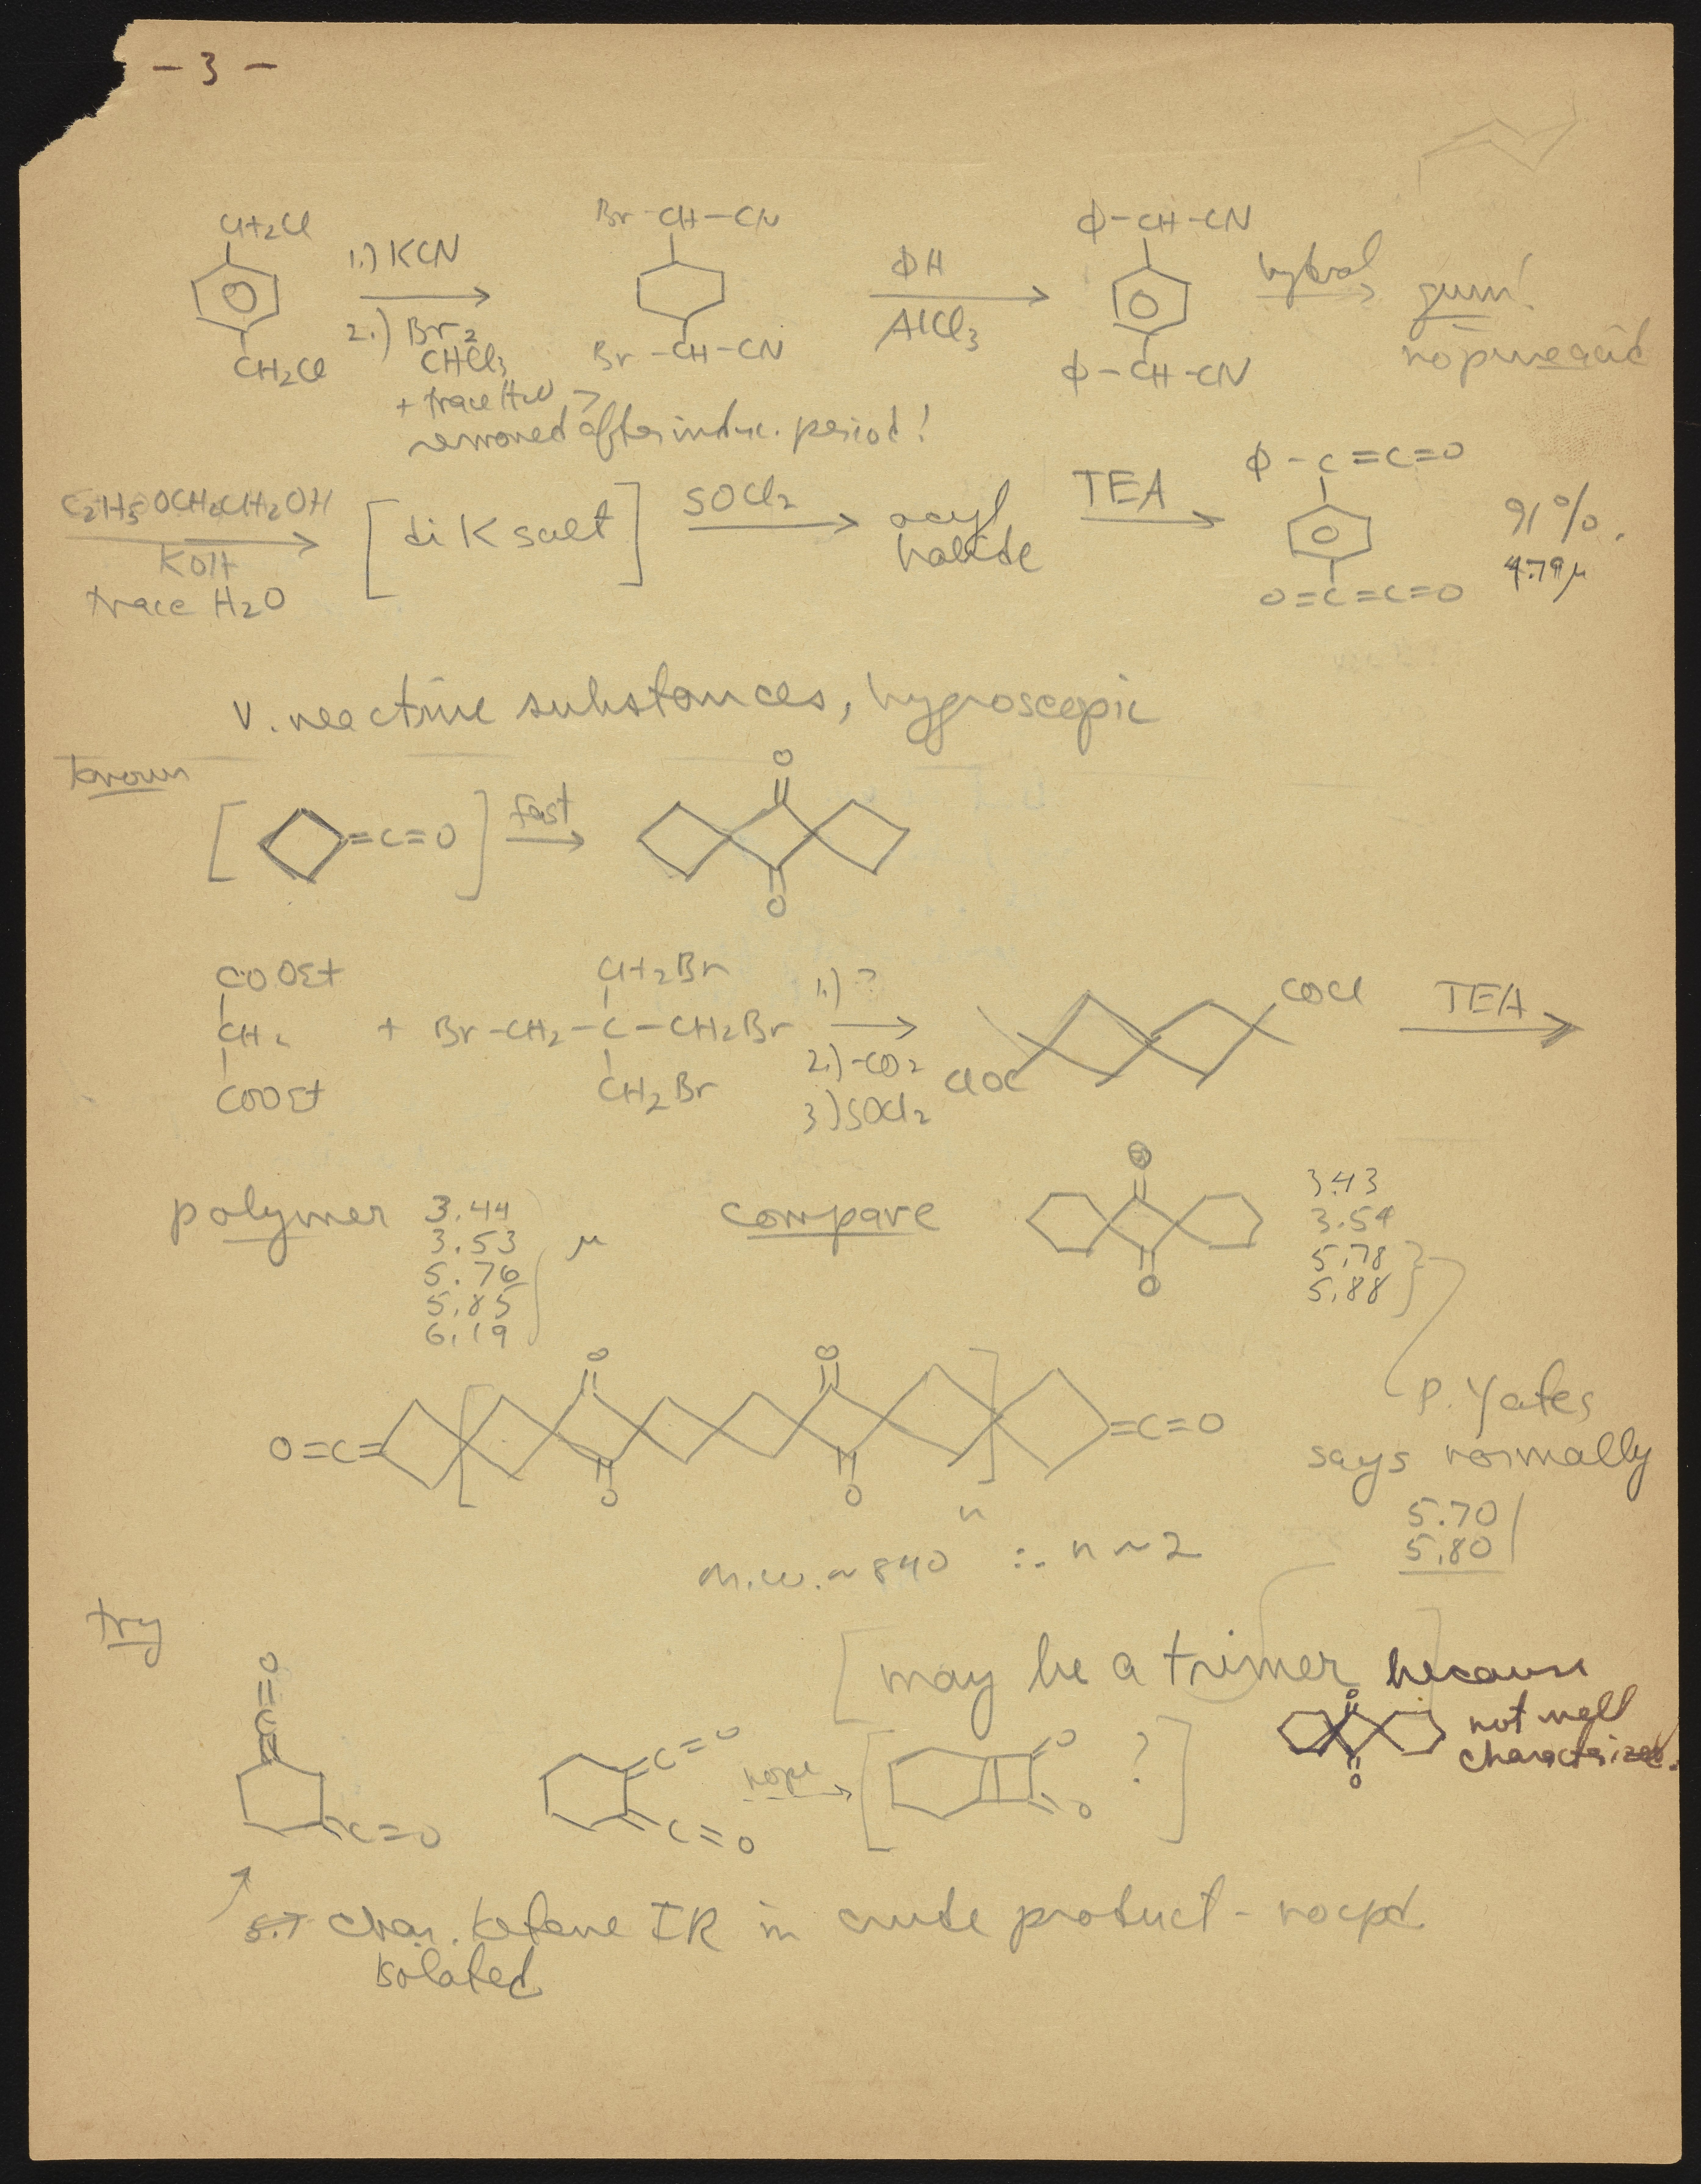 - 3 -
CH2Cl
CH2Cl
1.) KCN
2.) Br2
CHCl3
+ trace H2O
removed after induc. period!
Br-CH-CN
Br-CH-CN
ΦH
AlCl3
Φ-CH-CN
Φ-CH-CN
hydrol
gum!
no pure acid
C2H5OCH2CH2OH
KOH
trace H2O
[di K salt]
SOCl2
acyl
halide
TEA
Φ-C=C=O
O=C=C=O
91%.
4.79μ
v. reactive substances, hygroscopic
known
[ =C=O ]
fast
O
O
COOEt
CH2
COOEt
+
CH2Br
Br-CH2-C-CH2Br
CH2Br
1.) ?
2.) -CO2
3) SOCl2
COCl
ClOC
TEA
polymer
3.44
3.53
5.76
5.85
6.19
μ
compare
O
O
3.43
3.54
5.78
5.88
P. Yates
says normally
5.70
5.80
O=C=
O
O
O
O
=C=O
n
m.w. ~ 840 ∴ n ~ 2
try
[may be a trimer] because
O
O
not well
characterized.
O=C=
C=O
C=O
C=O
nope
[ O
O ? ]
5.7 char. ketene IR in crude product - no cpd.
isolated